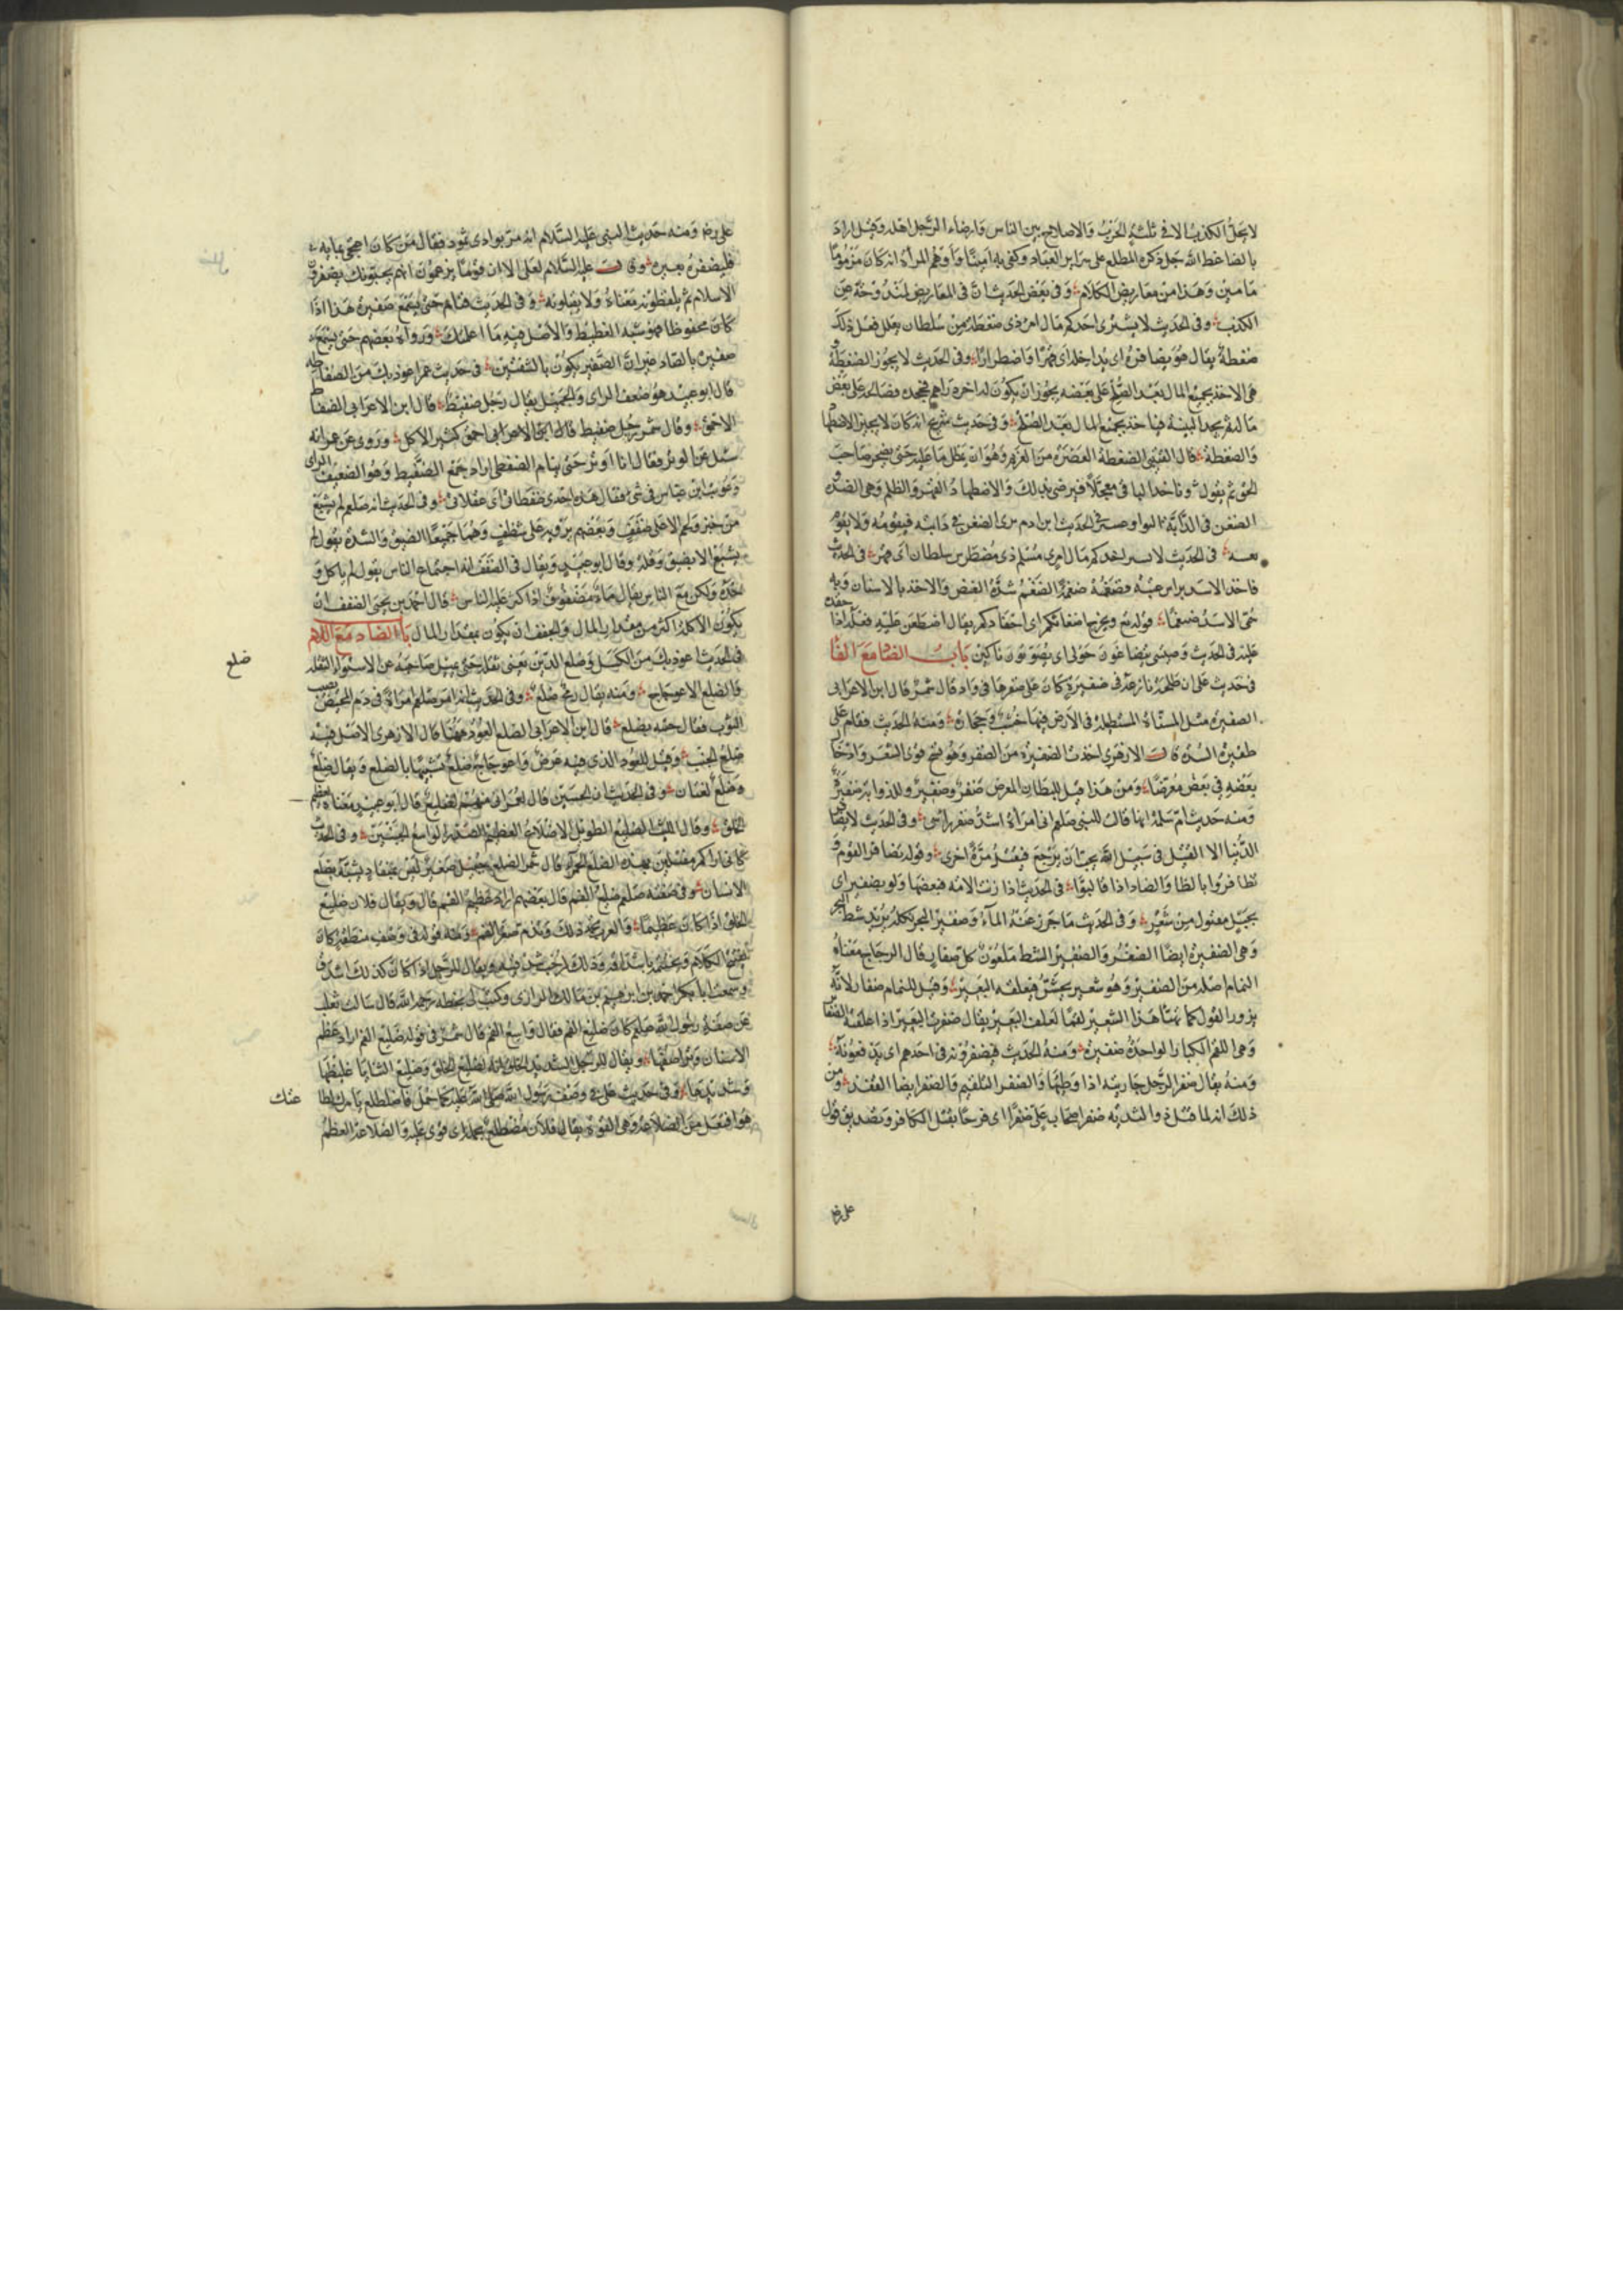 لا يحل الكذب الا في ثلثة الحرب والاصلاح بين الناس وارضاء الرجل اهله وقيل اراد
بالضاغط الله جل ذكره المطلع على سراير العباد وكفى به امينا واوهم المرأة انه كان مزموما
ما مين وهذا من معاريض الكلام وفي بعض الحديث ان في المعاريض لمندوحة عن
الكذب وفي الحديث لا يشترى احدكم مال امرء ذي ضغطة من سلطان فعل ذلك
ضغطة يقال هو يضا اى فهرا واضطرارا وفي الحديث لا يجوز الضغطة
هي الاخذ بجميع المال بعد الصلح على بعضه يجوز ان يكون له اخره دراهم فيجحده فصالحه على بعض
ماله ثم يجد البينة فياخذ بجميع المال بعد الصلح وفي حديث شريح انه كان لا يجيز الاضطها
والضغطة قال القتيبي الضغطة العصرة من الغريم وهو ان يمطل بما عليه حتى يضجر صاحب
الحق ثم يقول فيرضى بذلك والاضطهاد القهر والظلم وهي الضده
الضغن في الدابة في الحديث ابن ادم الضغن في دابته فيقومه ولا يقوم
في الحديث لا احدكم مال امرئ مسلم ذي من سلطان اى قهر في الحديث
فاخذ الاسد براس عتبه فضغمه ضغمة الضغم شدة العض والاخذ بالاسنان وبه
سمي الاسد ضيغما قوله تع ويخرج اضغانكم اى احقادكم يقال اضطغن عليه فعله اذا حقده
عليه في الحديث وصبيتي يتضاغون حولي اى يصوتون باكين باب الضاد مع الفا
في حديث علي ان طلحة نازعه في ضفيرة كان علي ضفرها في واد قال شمر قال ابن الاعرابي
الضفيره مثل المسناة المستطيلة في الارض فيها خشب وحجارة ومنه الحديث فقام على
ضفيرة السدة قال الازهري اخذت الضفيرة من الضفر وهو نسج قوى الشعر وادخال
بعضه في بعض معرضا ومن هذا قيل للبطان المعرض ضفر وضفير وللذوابة ضفيرة
ومنه حديث ام سلمة انها قالت للنبي صلعم اني امرأة اشد ضفر راسي وفي الحديث لا يضا
الدنيا الا القتيل في سبيل الله يحب ان يرجع فيقتل مرة اخرى وقوله تضافر القوم و
تظافروا بالظا والضاد اذا تالبوا في الحديث اذا زنت الامة فبعها ولو بضفير اى
بحبل مفتول من شعر وفي الحديث ما جزر عنه المآء وضفير البحر فكله يريد شط البحر
وهي الضفيرة ايضا الضفر والضفير المشط ملعون كل ضفار قال الزجاج معناه
النمام اصله من الضفير وهو شعير يجش فيعلفه البعير وقيل للنمام ضفار لانه
يزور القول كما يهيأ هذا الشعير لقما لعلف البعير يقال ضفرت البعير اذا علفته الضفا
وهي اللقم الكبار الواحدة ضفيرة ومنه الحديث فيضفزونه في احدهم اى يدفعونه
ومنه يقال ضفر الرجل جاريته اذا وطيها والضفر التلقيم والضفر ايضا القفز ومن
ذلك انه لما قتل ذو الثدية ضفر اصحاب علي ضفرا اى فرحا بقتل الكافر وتصديق قول
علي رض
علي رض ومنه حديث النبي عليه السلام انه مر بوادي ثمود فقال من كان اعتجن بمايه
فليضفره بعيره وقال عليه السلام لعلي الا ان قوما يزعمون انهم يحبونك يضفزون
الاسلام ثم يلفظونه معناه ولا يقبلونه وفي الحديث فنام حتى سمع ضفيره هذا اذا
كان محفوظا فهو شبه الغطيط والاصل فيه ما اعلمتك ورواه بعضهم حتى سمع
صفيره بالصاد غير ان الصفير يكون بالشفتين في حديث عمر اعوذ بك من الضفاطة
قال ابو عبيد هو ضعف الراى والجهل يقال رجل ضفيط قال ابن الاعرابي الضفاط
الاحمق وقال شمر رجل ضفيط قال ابن الاعرابي احمق كثير الاكل وروى عن عمر انه
سئل عن الوتر فقال انا اوتر حتى ينام الضفطى اراد جمع الضفيط وهو الضعيف الراى
وعوتب ابن عباس في شئ فقال هذه احدى ضفطاتي اى غفلاتي وفي الحديث انه صلعم لم يشبع
من خبز ولحم الا على ضفف وبعضهم يرويه على شظف وهما جميعا الضيق والشدة يقول لم
يشبع الا بضيق وقلة وقال ابو عبيد ويقال في الضفف انه اجتماع الناس يقول لم ياكل و
حده ولكن مع الناس يقال ماء مضفوف اذا كثر عليه الناس قال احمد بن يحيى الضفف ان
يكون الاكلة اكثر من مقدار المال والحفف ان يكون بمقدار المال باب الضاد مع اللام
في الحديث اعوذ بك من الكسل وضلع الدين يعني ثقله حتى يميل صاحبه عن الاستواء لثقله
والضلع الاعوجاج ومنه يقال رمح ضلع وفي الحديث انه امر صلعم امرأة في دم الحيض يصيب
الثوب فقال حتيه بضلع قال ابن الاعرابي الضلع العود ههنا قال الازهري الاصل فيه
ضلع الجنب وقيل للعود الذي فيه عرض واعوجاج ضلع تشبيها بالضلع ويقال ضلع
وضلع لغتان وفي الحديث ان الحسين قال اني منهم لضليع قال ابو عبيد معناه عظيم
الخلق وقال الليث الضليع الطويل الاضلاع العظيم الصدر الواسع الجنبين وفي الحديث
كاني اراكم مقتلين بهذه الضلع الحمرآء قال شمر الضلع جبيل صغير ليس بمنقاد يشبه بضلع
الانسان وفي صفته صلعم ضليع الفم قال بعضهم اراد عظيم الفم قال ويقال فلان ضليع
الخلق اذا كان عظيما والعرب تحمد ذلك وتذم صغر الفم ومنه قوله في وصف منطقه كان
يفتتح الكلام ويختمه باشداقه وذلك لرحب شدقيه ويقال للرجل اذا كان كذلك اشدق
وسمعت ابا بكر احمد بن ابرهيم بن مالك الرازى وكتب لي بخطه رحمه الله قال سالت ثعلب
عن صفة رسول الله صلعم كان ضليع الفم فقال واسع الفم قال شمر في قوله ضليع الفم اراد عظم
الاسنان وتراصفها ويقال للرجل الشديد الخلق انه لضليع الخلق وضليع الثنايا غليظها
وشديدها وفي حديث علي في وصفه رسول الله صلى الله عليه كما حمل فاضطلع بامرك لطا
هو افتعل من الضلاعة وهي القوة يقال فلان مضطلع بحمله اى قوى عليه والضلاعة العظم
ضلع
عنك